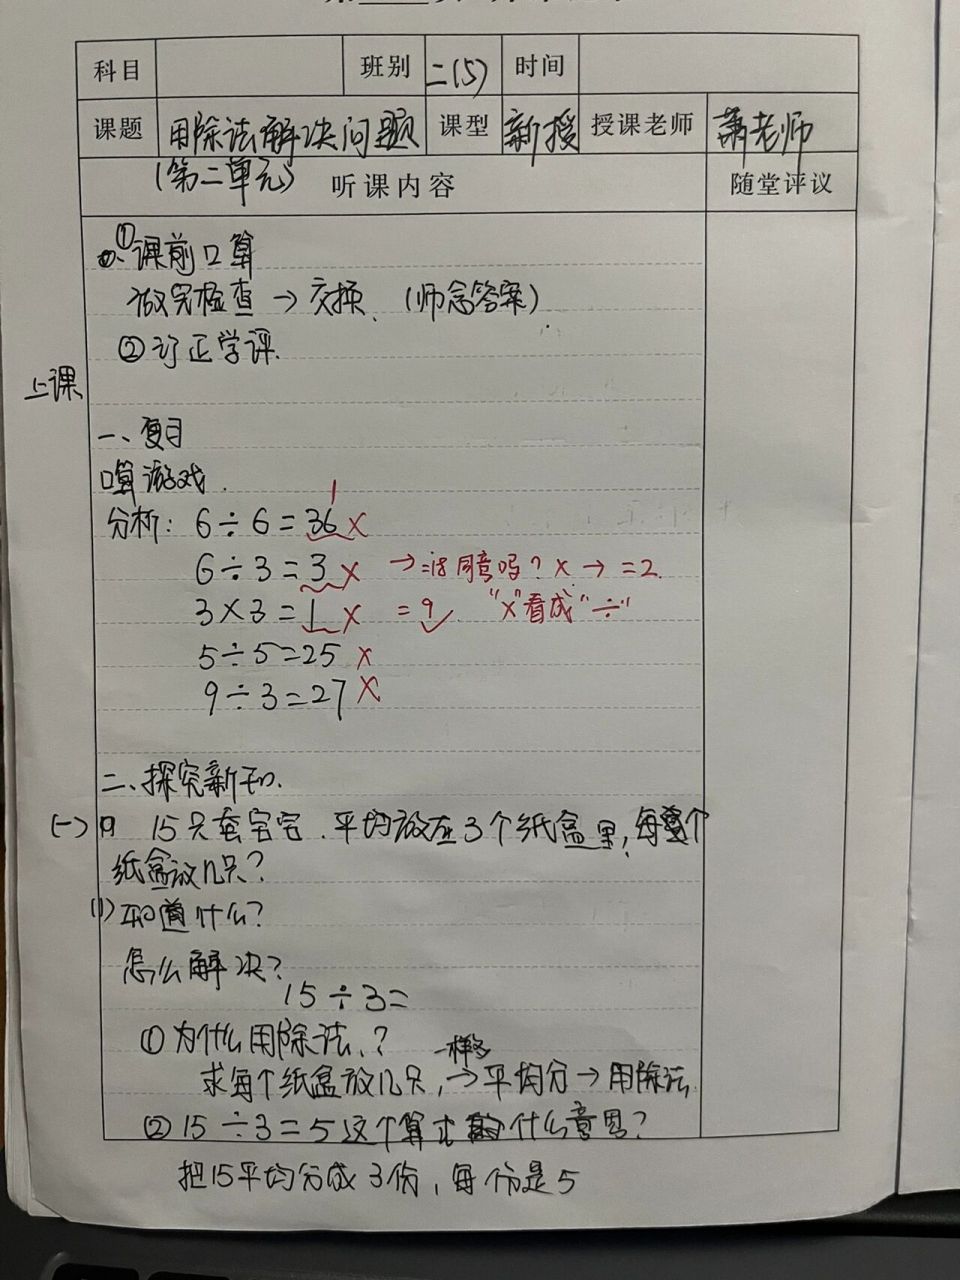 科目 班别 二(5) 时间
课题 用除法解决问题 课型 新授 授课老师 萧老师
(第二单元) 听课内容 随堂评议
① 课前口算
做完检查 → 交换、(师念答案)
② 订正学评.
上课
一、复习
口算游戏.
1
分析: 6÷6=36 ×
6÷3=3 × → 同意吗? × → =2.
3×3=1 × =9 ✓ "×"看成"÷"
5÷5=25 ×
9÷3=27 ×
二、探究新知.
(一) 15只蚕宝宝.平均放在3个纸盒里,每个
纸盒放几只?
(1) 知道什么?
怎么解决?
15÷3=
① 为什么用除法、?
一样多
求每个纸盒放几只, → 平均分 → 用除法
② 15÷3=5这个算式 什么意思?
把15平均分成3份,每份是5